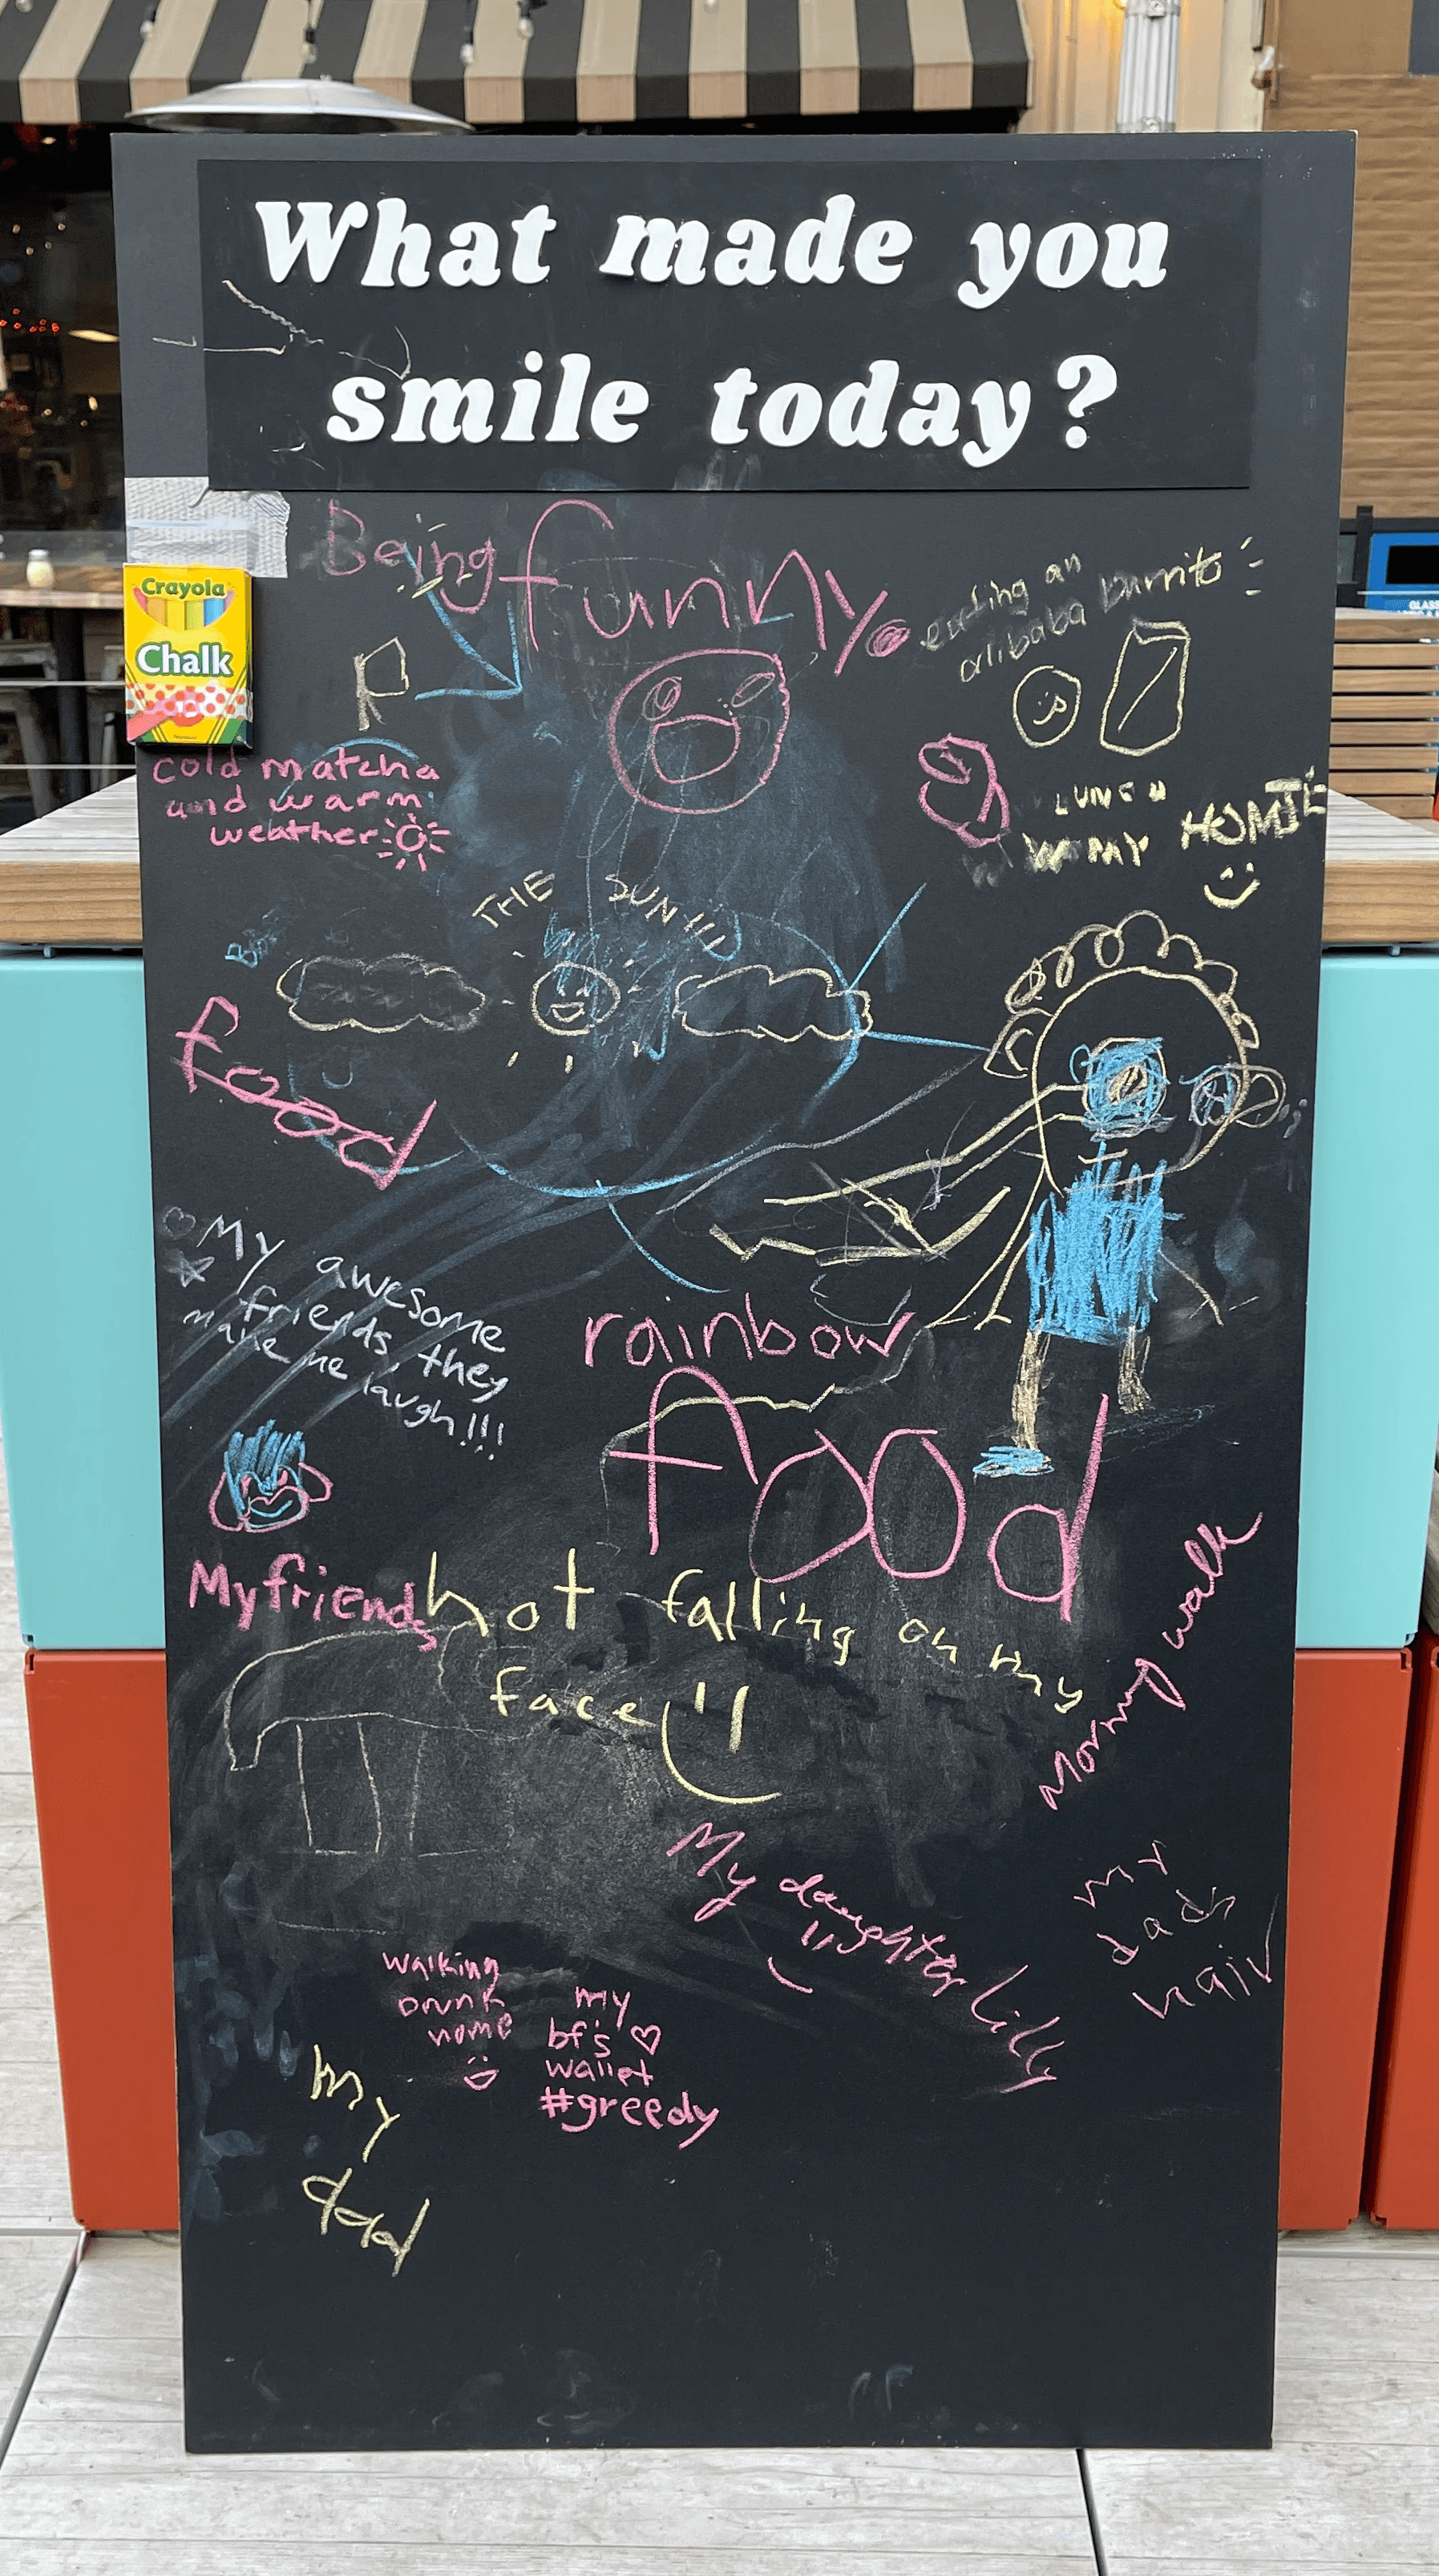 What made you
smile today?
Crayola
Chalk
Being funny
eating an
alibaba burrito
R
cold matcha
and warm
weather
LUNCH
W MY HOMIE
THE SUN!!!
food
My awesome
friends, they
make me laugh!!!
rainbow
food
My friends
not falling on my
face
Morning walk
My daughter Lilly
my
dads
hair
walking
drunk
home
my
bf's
wallet
#greedy
my
dad
GLASS